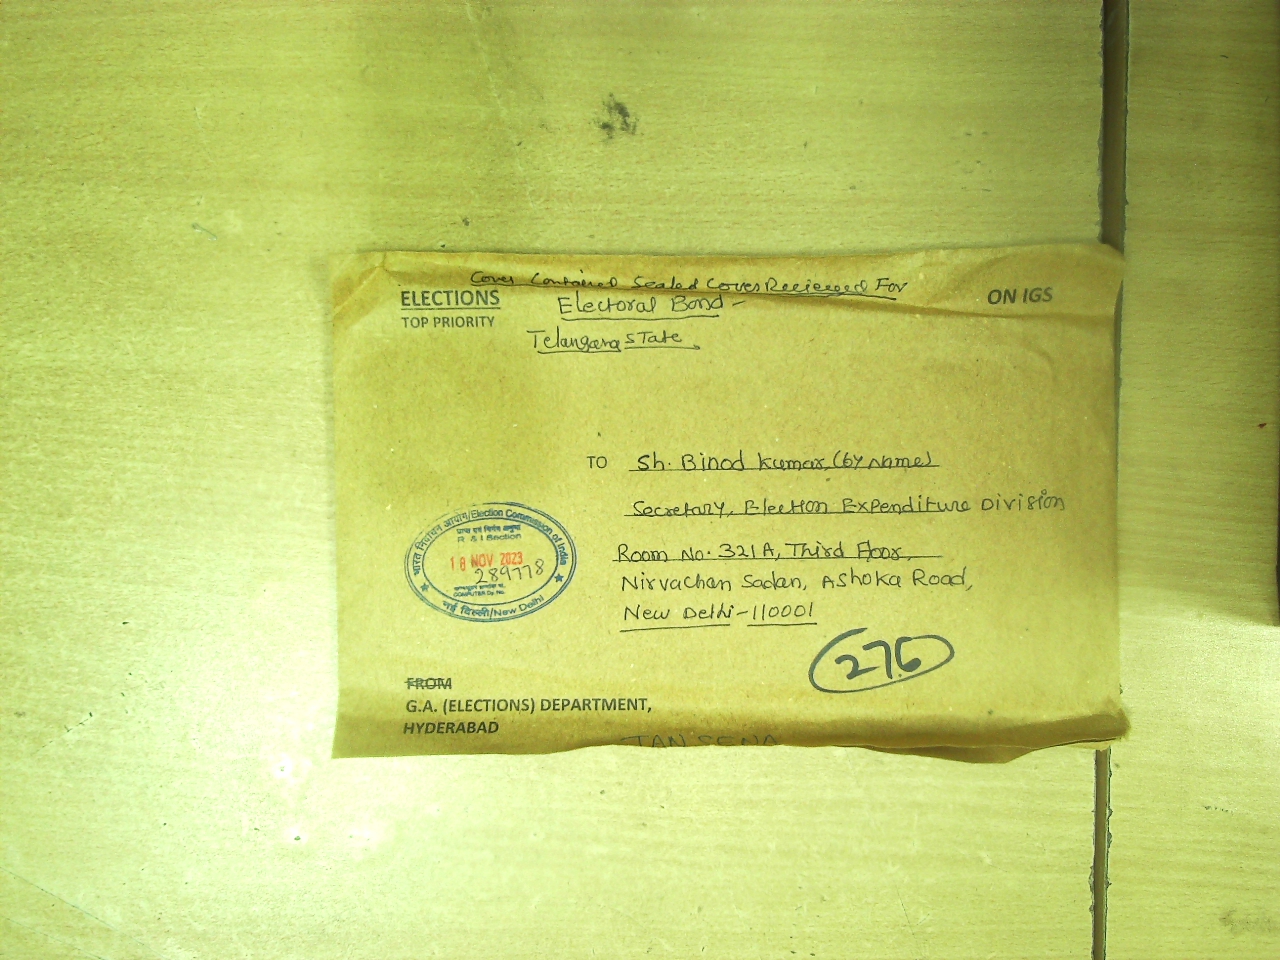 Cover Contained Sealed Cover Recieved For
ELECTIONS
Electoral Bond -
ON IGS
TOP PRIORITY
Telangana State
TO Sh. Binod Kumar, (by Name)
Secretary, Election Expenditure Division
Room No. 321A, Third Floor,
Nirvachan Sadan, Ashoka Road,
New Delhi-110001
भारत निर्वाचन आयोग/Election Commission of India
R & I Section
18 NOV 2023
289778
COMPUTER Dy. No.
नई दिल्ली/New Delhi
276
FROM
G.A. (ELECTIONS) DEPARTMENT,
HYDERABAD
JANSENA